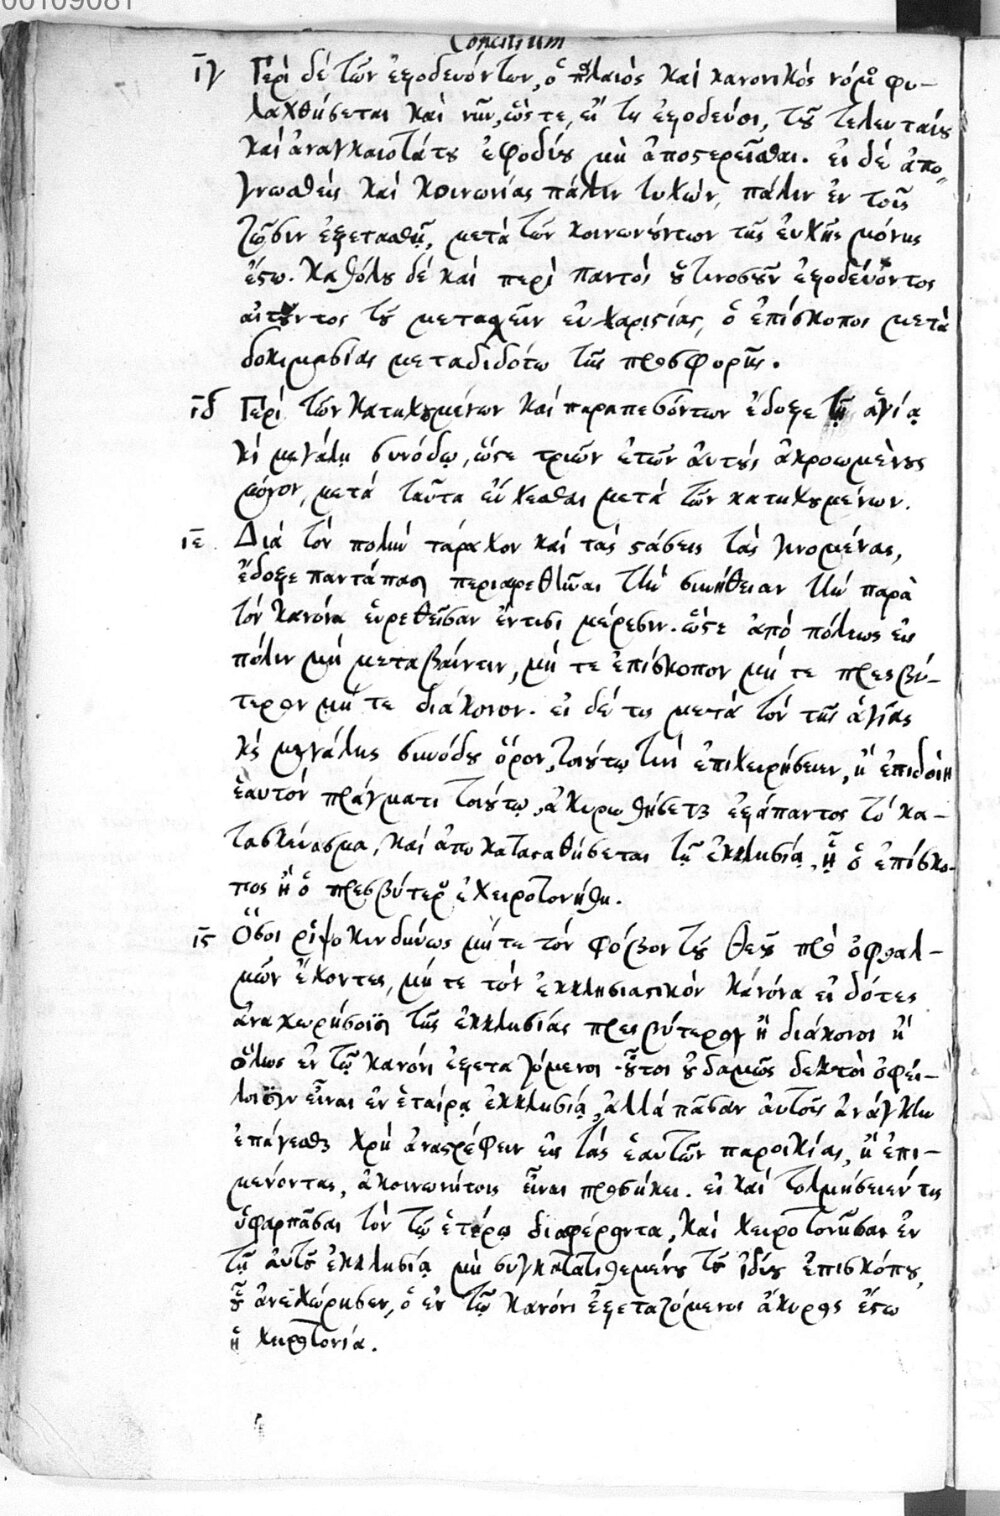 00109081
Concilium
ιγ Περὶ δὲ τῶν ἐξοδευόντων, ὁ παλαιὸς καὶ κανονικὸς νόμος φυ-
λαχθήσεται καὶ νῦν, ὥστε, εἴ τις ἐξοδεύοι, τοῦ τελευταίου
καὶ ἀναγκαιοτάτου ἐφοδίου μὴ ἀποστερεῖσθαι. εἰ δὲ ἀπο-
γνωσθεὶς καὶ κοινωνίας πάλιν τυχών, πάλιν ἐν τοῖς
ζῶσιν ἐξετασθῇ, μετὰ τῶν κοινωνούντων τῆς εὐχῆς μόνης
ἔστω. καθόλου δὲ καὶ περὶ παντὸς οὑτινοσοῦν ἐξοδεύοντος
αἰτοῦντος τοῦ μετασχεῖν εὐχαριστίας, ὁ ἐπίσκοπος μετὰ
δοκιμασίας μεταδιδότω τῆς προσφορῆς.
ιδ Περὶ τῶν κατηχουμένων καὶ παραπεσόντων ἔδοξε τῇ ἁγίᾳ
κὶ μεγάλῃ συνόδῳ, ὥστε τριῶν ἐτῶν αὐτοὺς ἀκροωμένους
μόνον, μετὰ ταῦτα εὔχεσθαι μετὰ τῶν κατηχουμένων.
ιε Διὰ τὸν πολὺν τάραχον καὶ τὰς στάσεις τὰς γινομένας,
ἔδοξε παντάπασι περιαιρεθῆναι τὴν συνήθειαν τὴν παρὰ
τὸν κανόνα εὑρεθεῖσαν ἔν τισι μέρεσιν. ὥστε ἀπὸ πόλεως εἰς
πόλιν μὴ μεταβαίνειν, μή τε ἐπίσκοπον μή τε πρεσβύ-
τερον μή τε διάκονον. εἰ δέ τις μετὰ τὸν τῆς ἁγίας
κὶ μεγάλης συνόδου ὅρον, τοιούτῳ τινὶ ἐπιχειρήσειεν, ἢ ἐπιδοίη
ἑαυτὸν πράγματι τοιούτῳ, ἀκυρωθήσεται ἐξάπαντος τὸ κα-
τασκεύασμα, καὶ ἀποκατασταθήσεται τῇ ἐκκλησίᾳ, ᾗ ὁ ἐπίσκο-
πος ἢ ὁ πρεσβύτερος ἐχειροτονήθη.
ις Ὅσοι ῥιψοκινδύνως μήτε τὸν φόβον τοῦ θεοῦ πρὸ ὀφθαλ-
μῶν ἔχοντες, μή τε τὸν ἐκκλησιαστικὸν κανόνα εἰδότες
ἀναχωρήσουσι τῆς ἐκκλησίας πρεσβύτεροι ἢ διάκονοι ἢ
ὅλως ἐν τῷ κανόνι ἐξεταζόμενοι· οὗτοι οὐδαμῶς δεκτοὶ ὀφεί-
λουσιν εἶναι ἐν ἑταίρᾳ ἐκκλησίᾳ, ἀλλὰ πᾶσαν αὐτοῖς ἀνάγκην
ἐπάγεσθαι χρὴ ἀναστρέφειν εἰς τὰς ἑαυτῶν παροικίας, ἢ ἐπι-
μένοντας, ἀκοινωνήτοις εἶναι προσήκει. εἰ καὶ τολμήσειέν τις
ὑφαρπᾶσαι τὸν τῷ ἑτέρῳ διαφέροντα, καὶ χειροτονῆσαι ἐν
τῇ αὐτοῦ ἐκκλησίᾳ μὴ συγκατατιθεμένου τοῦ ἰδίου ἐπισκόπου,
οὗ ἀνεχώρησεν, ὁ ἐν τῷ κανόνι ἐξεταζόμενος ἄκυρος ἔστω
ἡ χειροτονία.